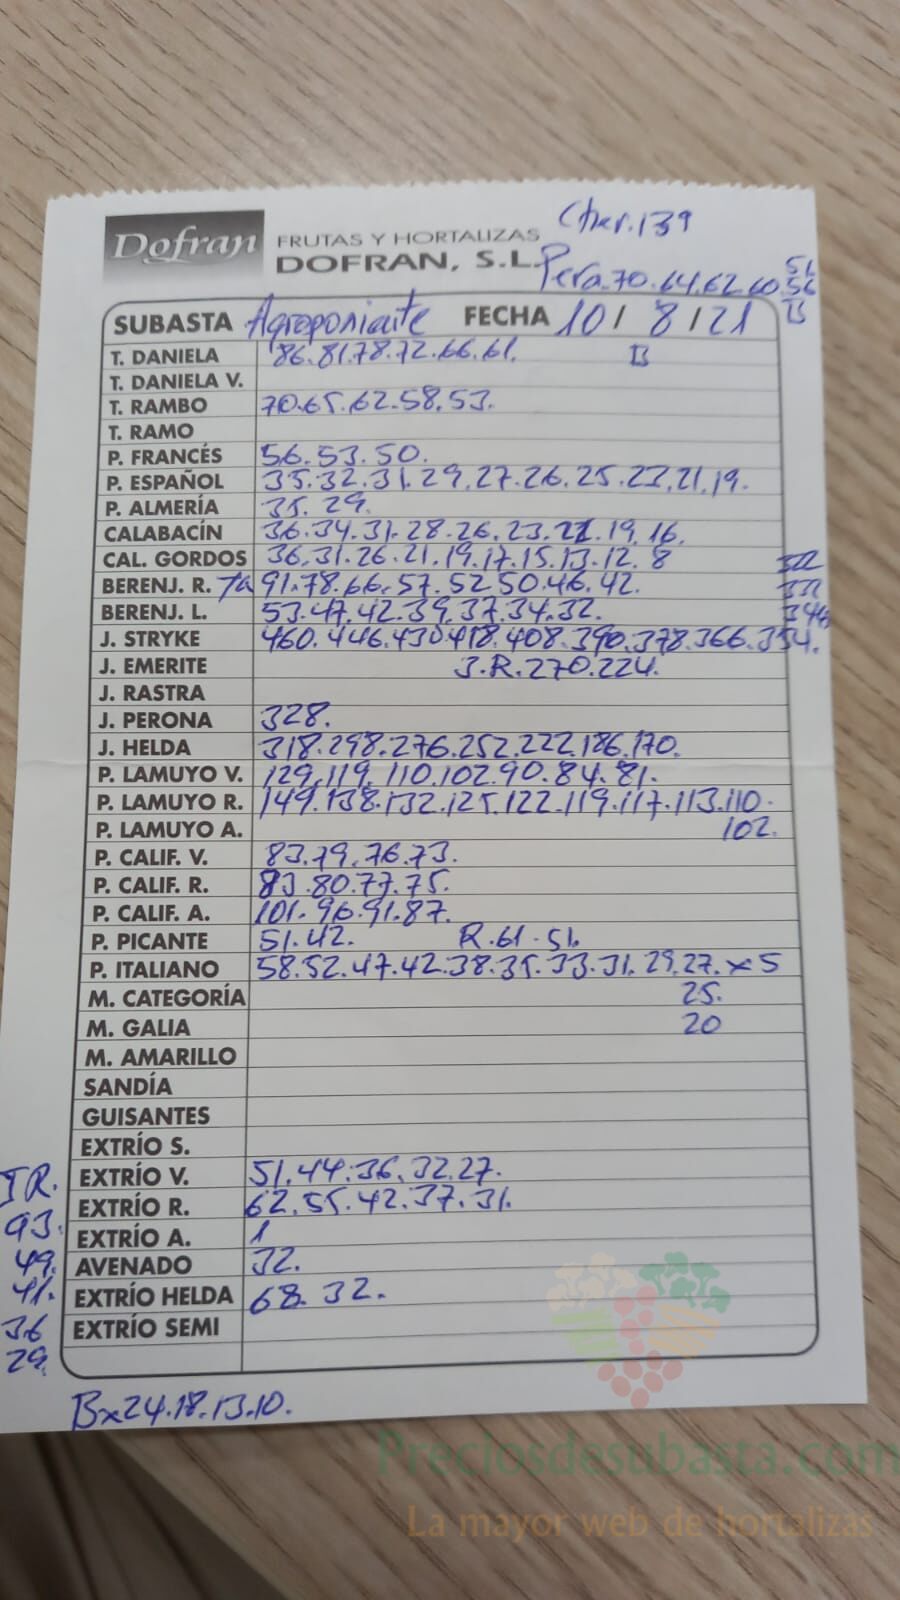 Cher. 139
Dofran FRUTAS Y HORTALIZAS
DOFRAN, S.L. Pera. 70. 64. 62. 60. 56
51
B
SUBASTA Agroponiente FECHA 10/ 8/21
T. DANIELA 86. 81. 78. 72. 66. 61. B
T. DANIELA V.
T. RAMBO 70. 65. 62. 58. 53.
T. RAMO
P. FRANCÉS 56. 53. 50.
P. ESPAÑOL 35. 32. 31. 29. 27. 26. 25. 23. 21. 19.
P. ALMERÍA 35. 29.
CALABACÍN 36. 34. 31. 28. 26. 23. 19. 16.
CAL. GORDOS 36. 31. 26. 21. 19. 17. 15. 13. 12. 8
BERENJ. R. 91. 78. 66. 57. 52. 50. 46. 42.
BERENJ. L. 53. 47. 42. 39. 37. 34. 32. 346
J. STRYKE 460. 446. 430. 418. 408. 390. 378. 366. 354.
J. EMERITE J.R. 270. 224.
J. RASTRA
J. PERONA 328.
J. HELDA 318. 298. 276. 252. 222. 186. 170.
P. LAMUYO V. 129. 119. 110. 102. 90. 84. 81.
P. LAMUYO R. 149. 138. 132. 125. 122. 119. 117. 113. 110.
P. LAMUYO A. 102.
P. CALIF. V. 83. 79. 76. 73.
P. CALIF. R. 83. 80. 77. 75.
P. CALIF. A. 101. 96. 91. 87.
P. PICANTE 51. 42. R. 61. 51.
P. ITALIANO 58. 52. 47. 42. 38. 35. 33. 31. 29. 27. x 5
M. CATEGORÍA 25.
M. GALIA 20
M. AMARILLO
SANDÍA
GUISANTES
EXTRÍO S.
EXTRÍO V. 51. 44. 36. 32. 27.
EXTRÍO R. 62. 55. 42. 37. 31.
EXTRÍO A. 1
AVENADO 32.
EXTRÍO HELDA 68. 32.
EXTRÍO SEMI
93.
49.
41.
36
29.
Bx24. 18. 13. 10.
Preciosdesubasta.com
La mayor web de hortalizas